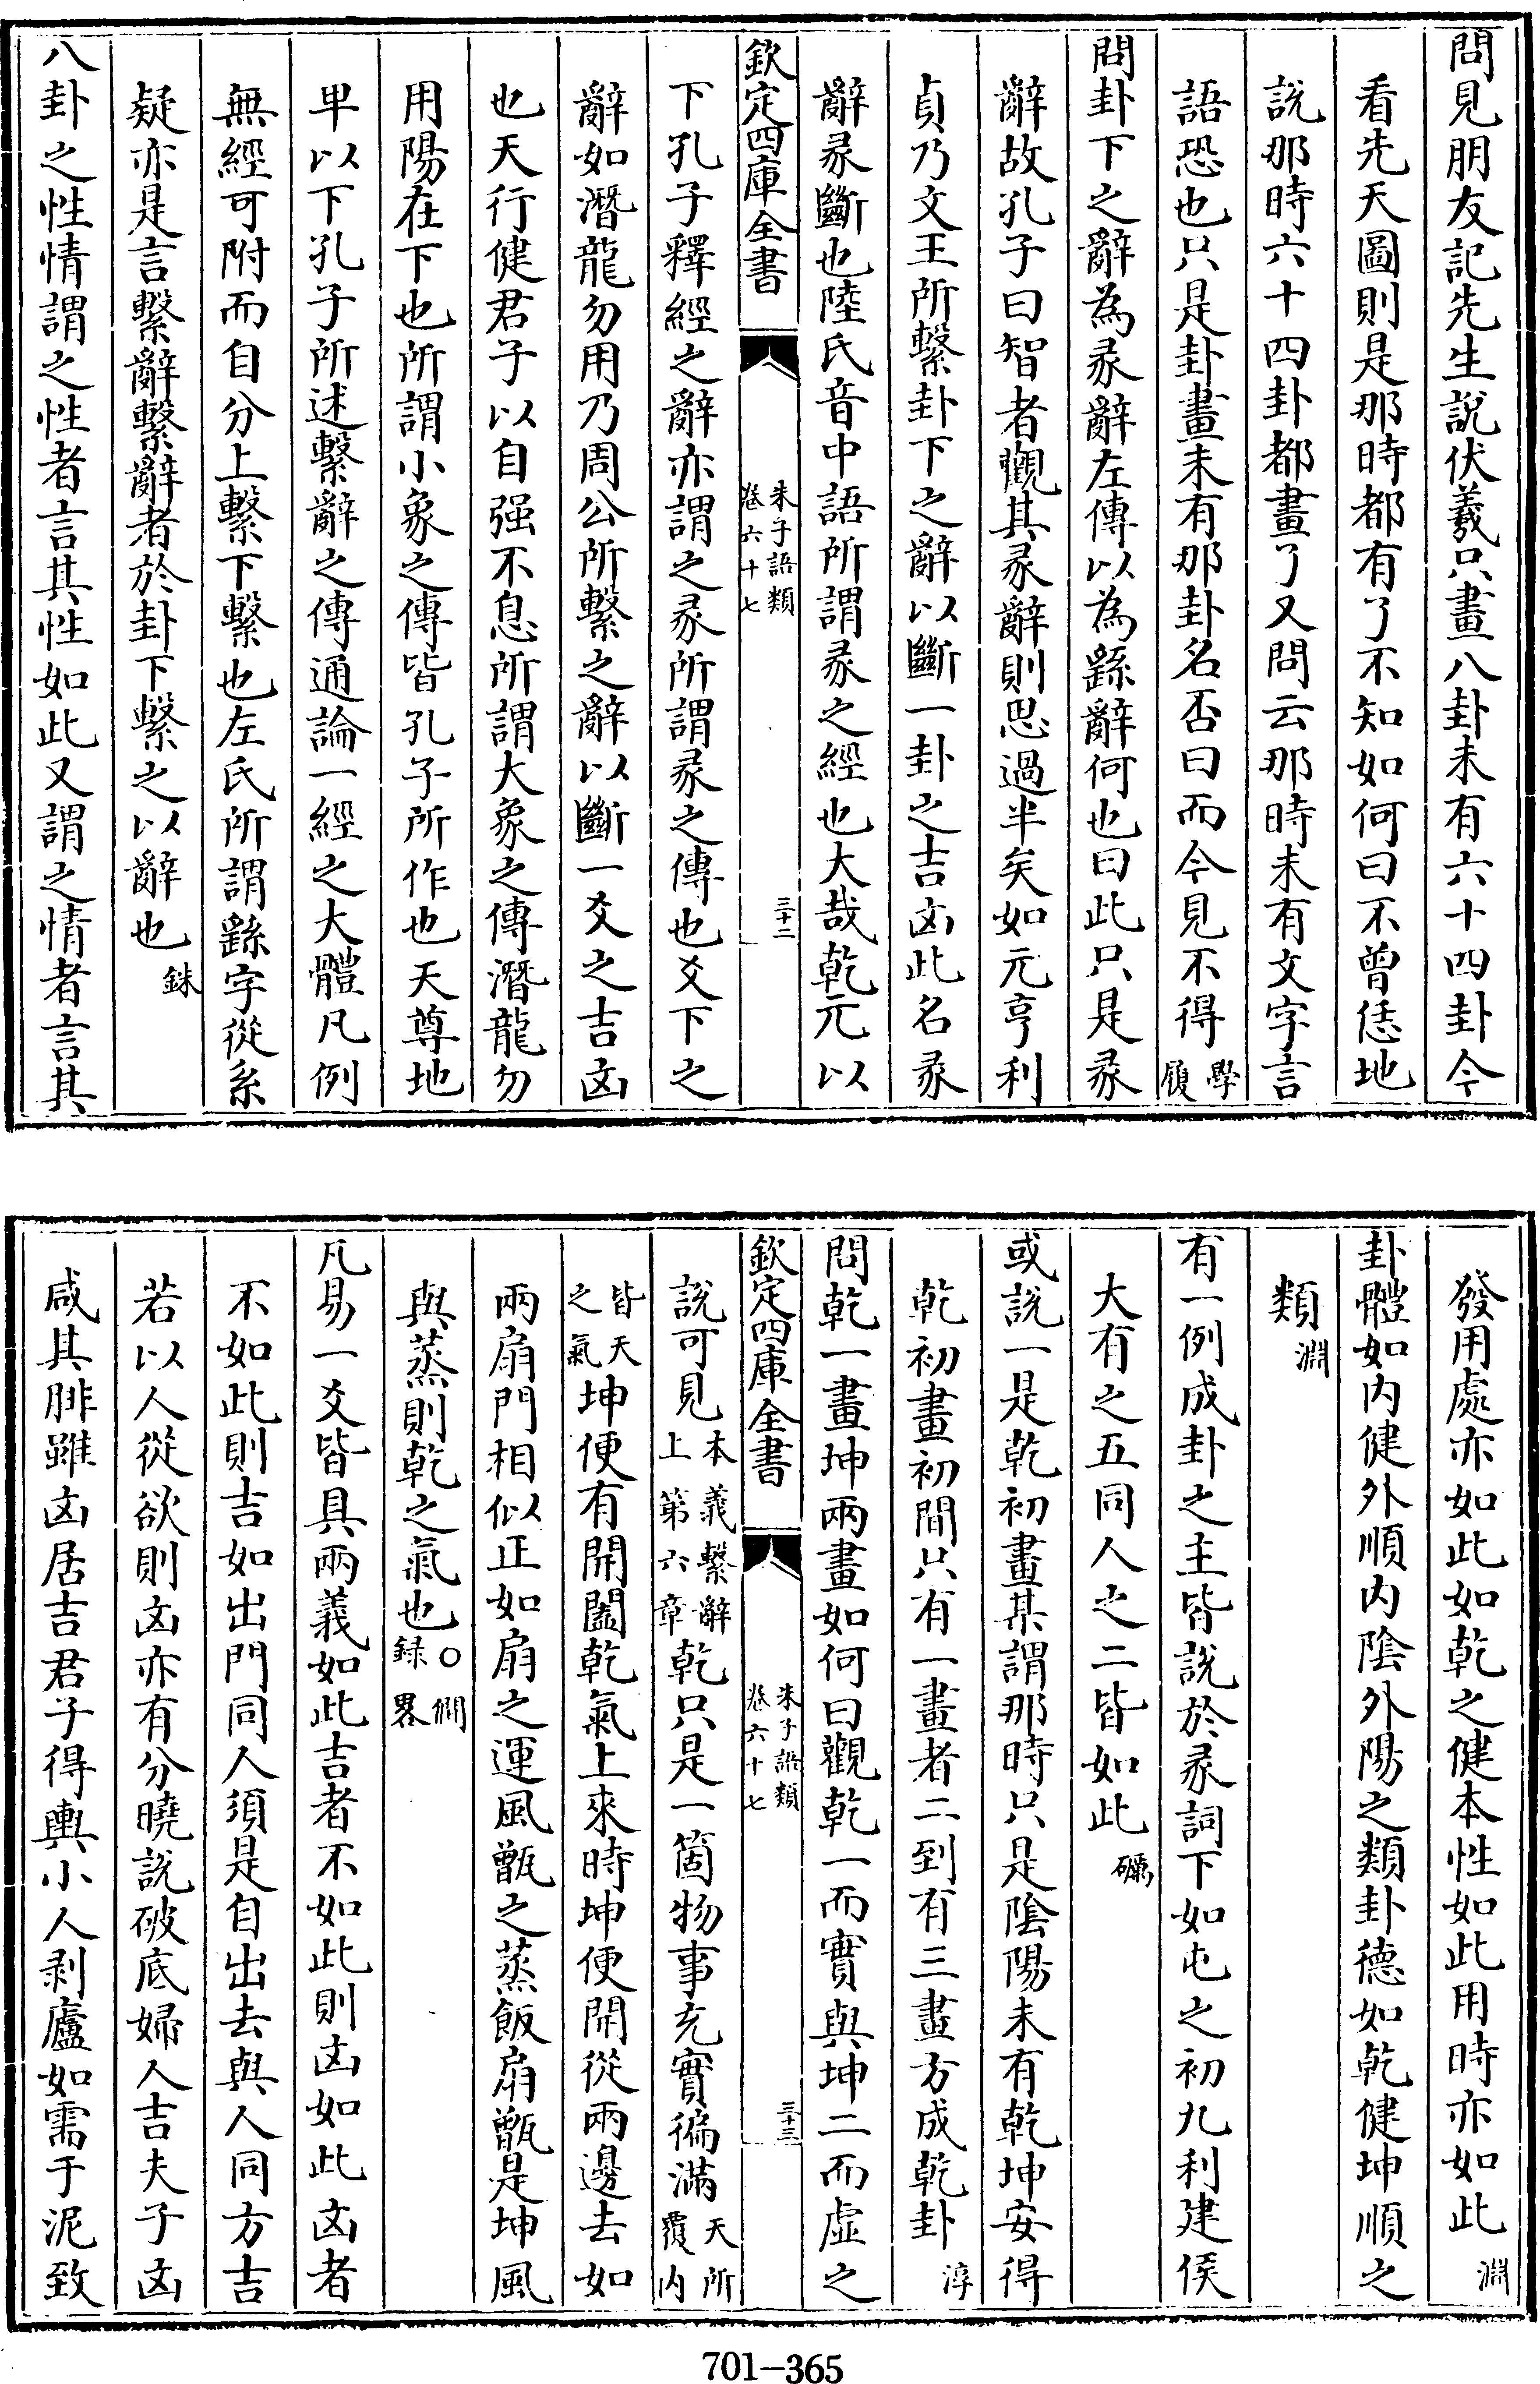 問見朋友記先生說伏羲只畫八卦未有六十四卦今
看先天圖則是那時都有了不知如何曰不曾恁地
說那時六十四卦都畫了又問云那時未有文字言
語恐也只是卦畫未有那卦名否曰而今見不得學履
問卦下之辭為彖辭左傳以為繇辭何也曰此只是彖
辭故孔子曰智者觀其彖辭則思過半矣如元亨利
貞乃文王所繫卦下之辭以斷一卦之吉凶此名彖
辭彖斷也陸氏音中語所謂彖之經也大哉乾元以
欽定四庫全書 朱子語類卷六十七 三十二
下孔子釋經之辭亦謂之彖所謂彖之傳也爻下之
辭如潛龍勿用乃周公所繫之辭以斷一爻之吉凶
也天行健君子以自强不息所謂大象之傳潛龍勿
用陽在下也所謂小象之傳皆孔子所作也天尊地
卑以下孔子所述繫辭之傳通論一經之大體凡例
無經可附而自分上繫下繫也左氏所謂繇字從系
疑亦是言繫辭繫辭者於卦下繫之以辭也銖
八卦之性情謂之性者言其性如此又謂之情者言其
發用處亦如此如乾之健本性如此用時亦如此淵
卦體如内健外順内陰外陽之類卦德如乾健坤順之
類淵
有一例成卦之主皆說於彖詞下如屯之初九利建侯
大有之五同人之二皆如此礪
或說一是乾初畫某謂那時只是陰陽未有乾坤安得
乾初畫初間只有一畫者二到有三畫方成乾卦淳
問乾一畫坤兩畫如何曰觀乾一而實與坤二而虛之
欽定四庫全書 朱子語類卷六十七 三十三
說可見本義繫辭上第六章乾只是一箇物事充實徧滿天所覆内
皆天之氣坤便有開闔乾氣上來時坤便開從兩邊去如
兩扇門相似正如扇之運風甑之蒸飯扇甑是坤風
與蒸則乾之氣也○僩録畧
凡易一爻皆具兩義如此吉者不如此則凶如此凶者
不如此則吉如出門同人須是自出去與人同方吉
若以人從欲則凶亦有分曉說破底婦人吉夫子凶
咸其腓雖凶居吉君子得輿小人剥廬如需于泥致
701-365